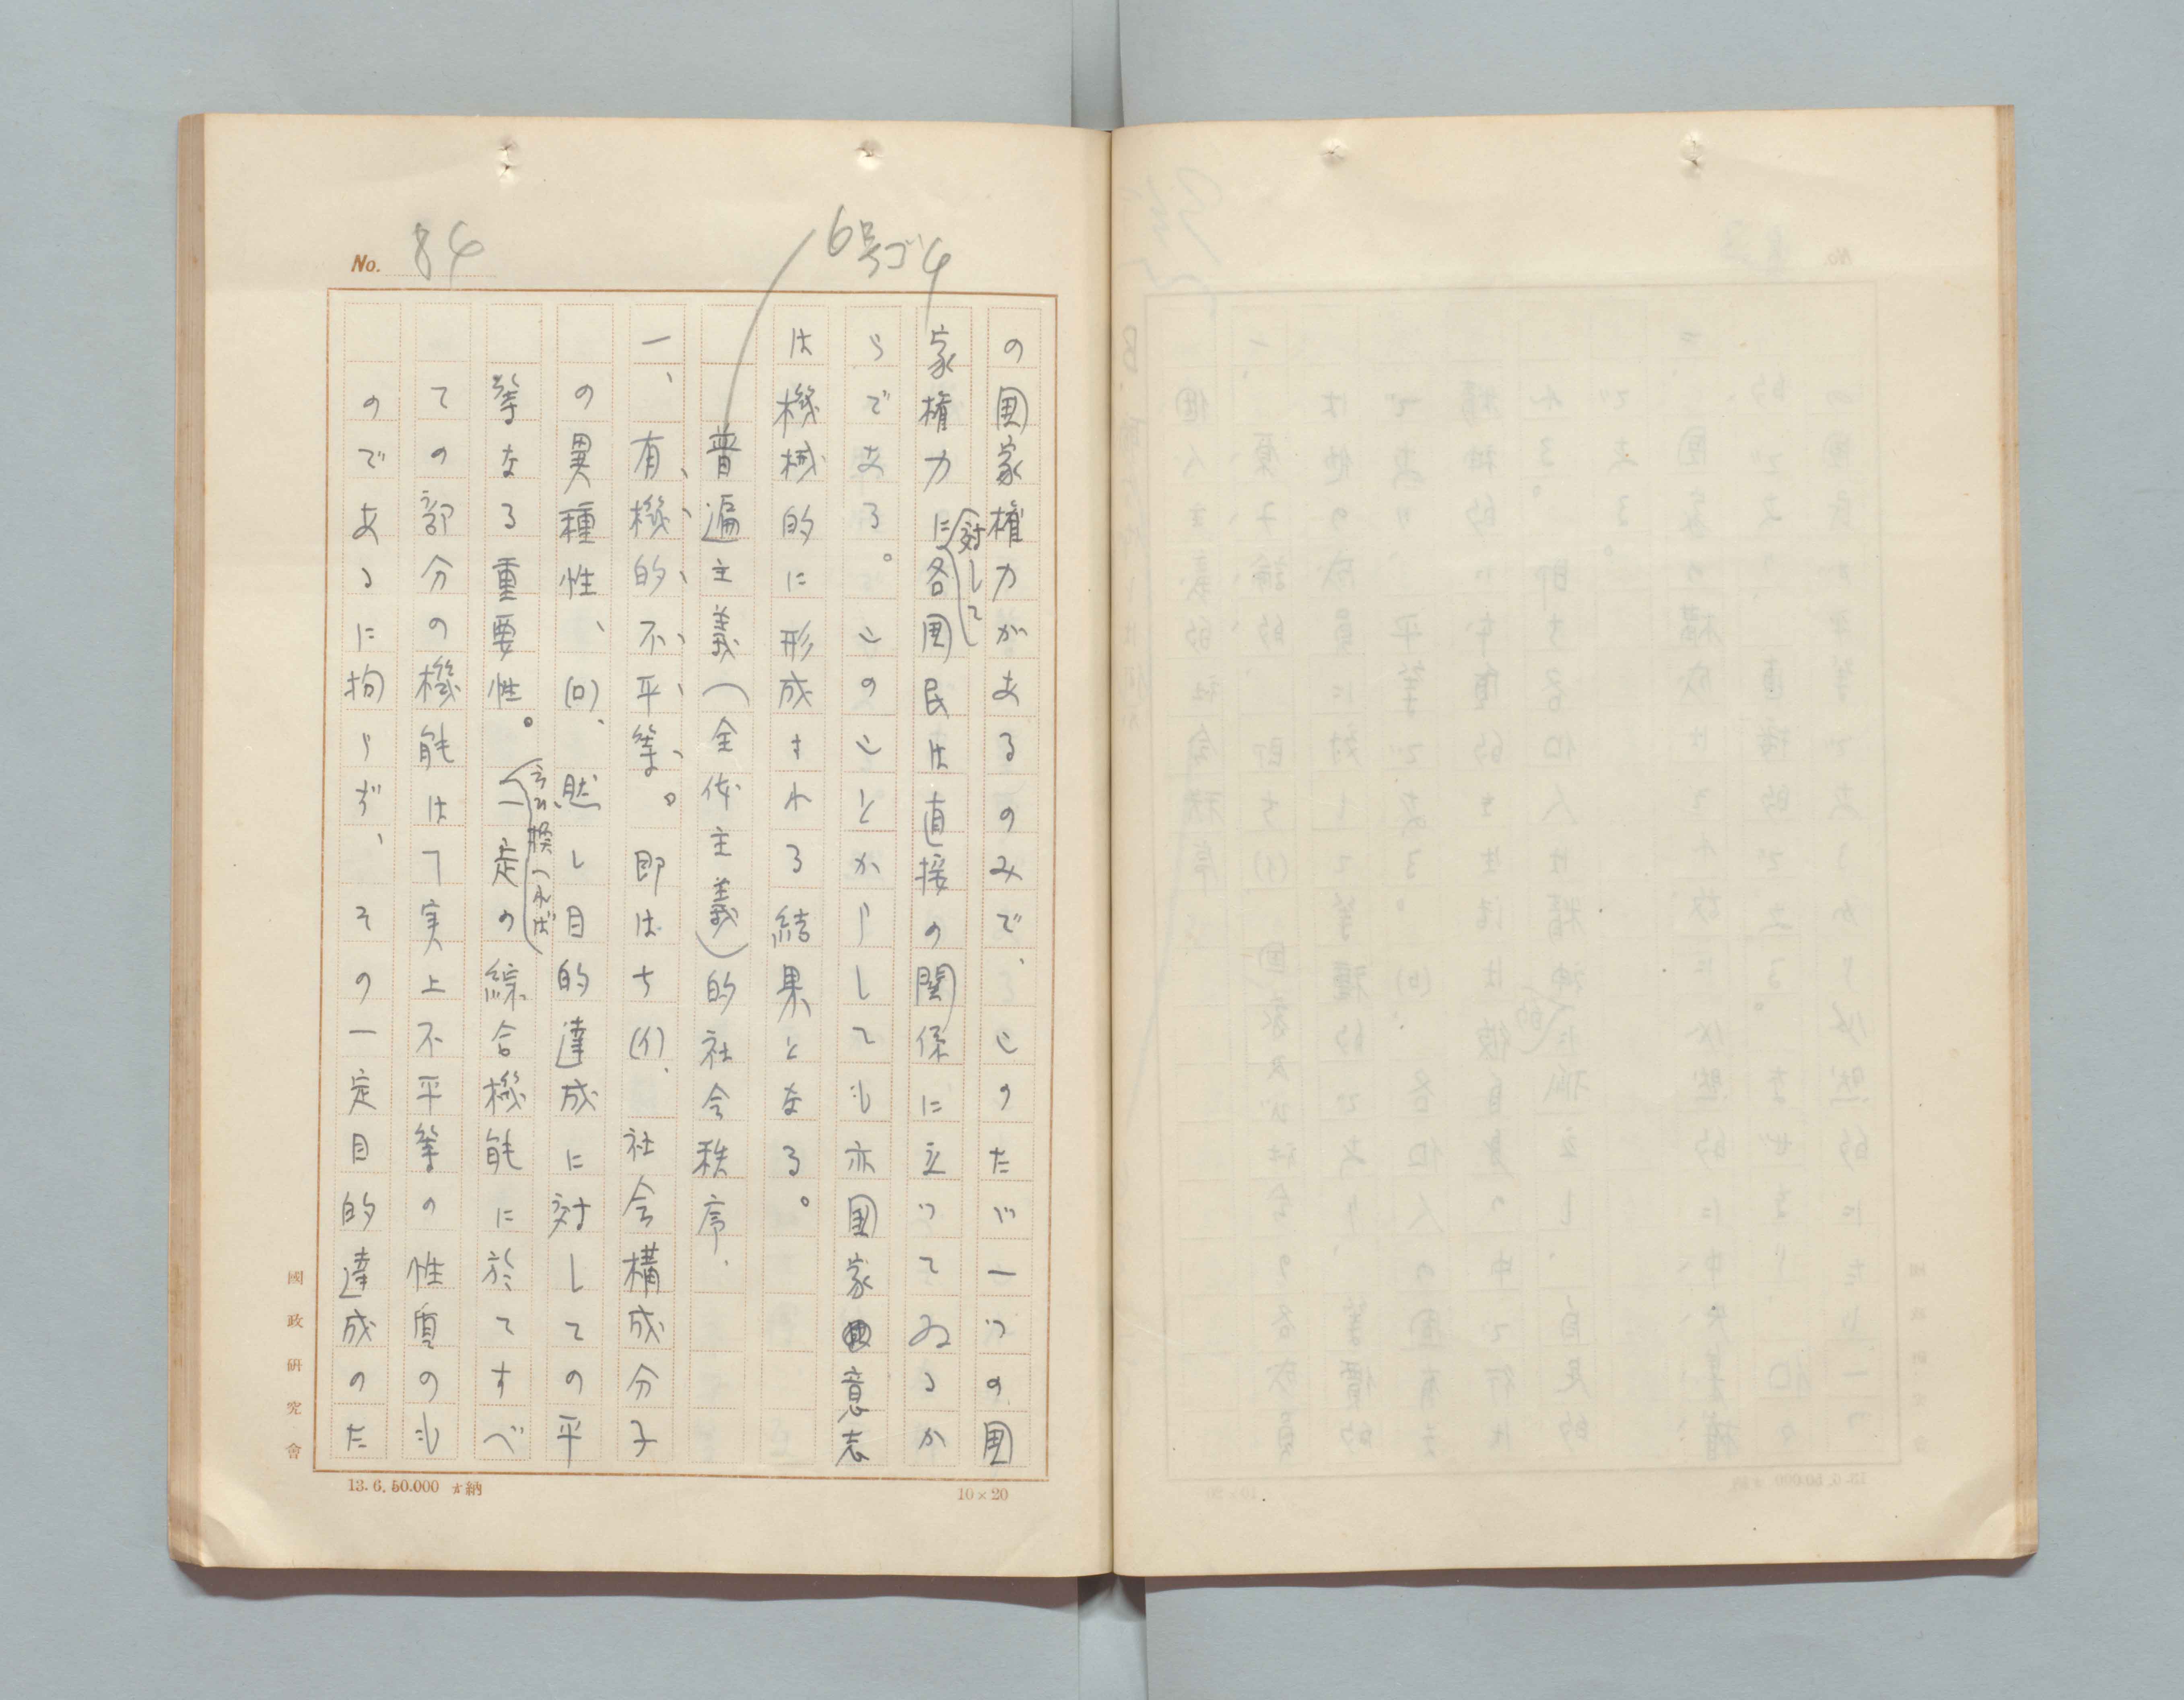 No. 84
6号ゴ4
の国家権力があるのみで、このたゞ一つの国
家権力に対して各国民は直接の関係に立つてゐるか
らである。このことからしても亦国家意志
は機械的に形成される結果となる。
普遍主義(全体主義)的社会秩序.
一、有機的不平等。即はち(イ)、社会構成分子
の異種性、(ロ)、然し目的達成に対しての平
等なる重要性。云ひ換へれば「一定の綜合機能に於てすべ
ての部分の機能は「実上不平等の性質のも
のであるに拘らず、その一定目的達成のた
國政研究會
13.6.50.000 納
10×20